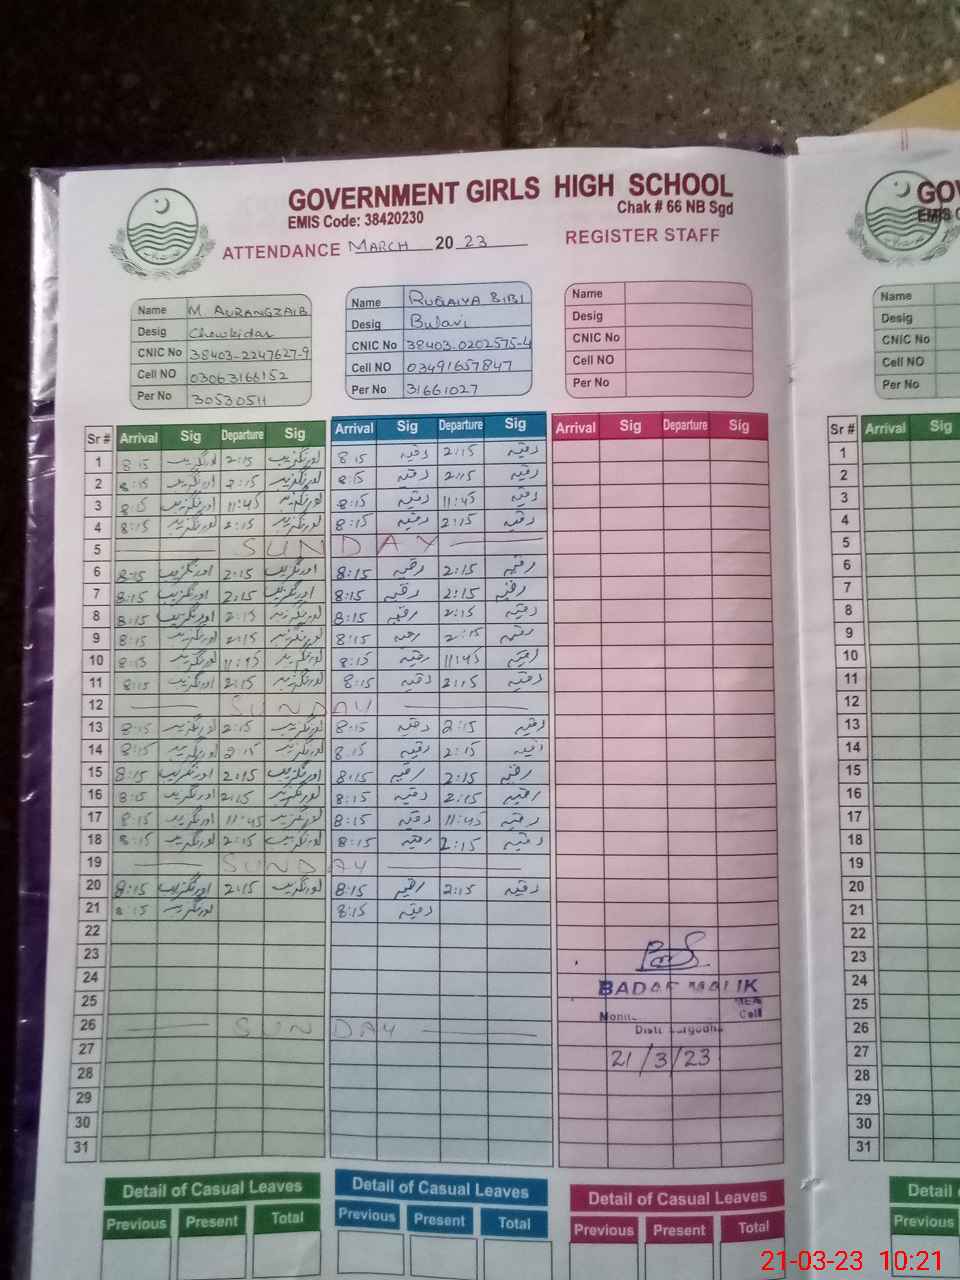 GOVERNMENT GIRLS HIGH SCHOOL
EMIS Code: 38420230 Chak # 66 NB Sgd
ATTENDANCE MARCH 20 23 REGISTER STAFF
Name M. AURANGZAIB Name RUQAIYA BIBI Name
Desig Chowkidar Desig Bulavi Desig
CNIC No 38403-2247627-9 CNIC No 38403-0202575-4 CNIC No
Cell NO 03063166152 Cell NO 03491657847 Cell NO
Per No 30530511 Per No 31661027 Per No
Sr # Arrival Sig Departure Sig Arrival Sig Departure Sig Arrival Sig Departure Sig
1 8:15 اورنگزیب 2:15 اورنگزیب 8:15 رقیہ 2:15 رقیہ
2 8:15 اورنگزیب 2:15 اورنگزیب 8:15 رقیہ 2:15 رقیہ
3 8:15 اورنگزیب 11:45 اورنگزیب 8:15 رقیہ 11:45 رقیہ
4 8:15 اورنگزیب 2:15 اورنگزیب 8:15 رقیہ 2:15 رقیہ
5 SUNDAY
6 8:15 اورنگزیب 2:15 اورنگزیب 8:15 رقیہ 2:15 رقیہ
7 8:15 اورنگزیب 2:15 اورنگزیب 8:15 رقیہ 2:15 رقیہ
8 8:15 اورنگزیب 2:15 اورنگزیب 8:15 رقیہ 2:15 رقیہ
9 8:15 اورنگزیب 2:15 اورنگزیب 8:15 رقیہ 2:15 رقیہ
10 8:15 اورنگزیب 11:45 اورنگزیب 8:15 رقیہ 11:45 رقیہ
11 8:15 اورنگزیب 2:15 اورنگزیب 8:15 رقیہ 2:15 رقیہ
12 SUNDAY
13 8:15 اورنگزیب 2:15 اورنگزیب 8:15 رقیہ 2:15 رقیہ
14 8:15 اورنگزیب 2:15 اورنگزیب 8:15 رقیہ 2:15 رقیہ
15 8:15 اورنگزیب 2:15 اورنگزیب 8:15 رقیہ 2:15 رقیہ
16 8:15 اورنگزیب 2:15 اورنگزیب 8:15 رقیہ 2:15 رقیہ
17 8:15 اورنگزیب 11:45 اورنگزیب 8:15 رقیہ 11:45 رقیہ
18 8:15 اورنگزیب 2:15 اورنگزیب 8:15 رقیہ 2:15 رقیہ
19 SUNDAY
20 8:15 اورنگزیب 2:15 اورنگزیب 8:15 رقیہ 2:15 رقیہ
21 8:15 اورنگزیب 8:15 رقیہ
22
23
24 BADAR MALIK
25 MEA Cell
26 SUNDAY Distt Sargodha
27 21/3/23
28
29
30
31
Detail of Casual Leaves Detail of Casual Leaves Detail of Casual Leaves
Previous Present Total Previous Present Total Previous Present Total
GOV
EMIS
Name
Desig
CNIC No
Cell NO
Per No
Sr # Arrival Sig
1
2
3
4
5
6
7
8
9
10
11
12
13
14
15
16
17
18
19
20
21
22
23
24
25
26
27
28
29
30
31
Detail
Previous
21-03-23 10:21